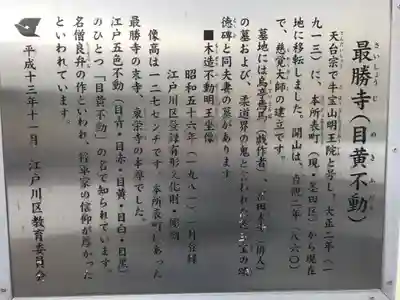 さいしょうじ めきふどう
最勝寺(目黄不動)
てんだいしゅう
天台宗で牛宝山明王院と号し、大正二年(一
九一三)に、本所表町(現・墨田区)から現在
地に移転しました。開山は、貞観二年(八六〇)
で、慈覚大師の建立です。
墓地には烏亭焉馬(戯作者)、
の墓および、柔道界の鬼といわれた
徳碑と同夫妻の墓があります
■木造不動明王坐像
昭和五十六年(一九八一)一月登録
江戸川区登録有形文化財・彫刻
像高は一二七センチです。本所表町にあった
最勝寺の末寺、東栄寺の本尊でした。
江戸五色不動(目青・目赤・目黄・目白・目黒)
のひとつ「目黄不動」の名で知られています。
名僧良弁の作といわれ、将軍家の信仰が厚かった
といわれています。
平成十三年十一月 江戸川区教育委員会